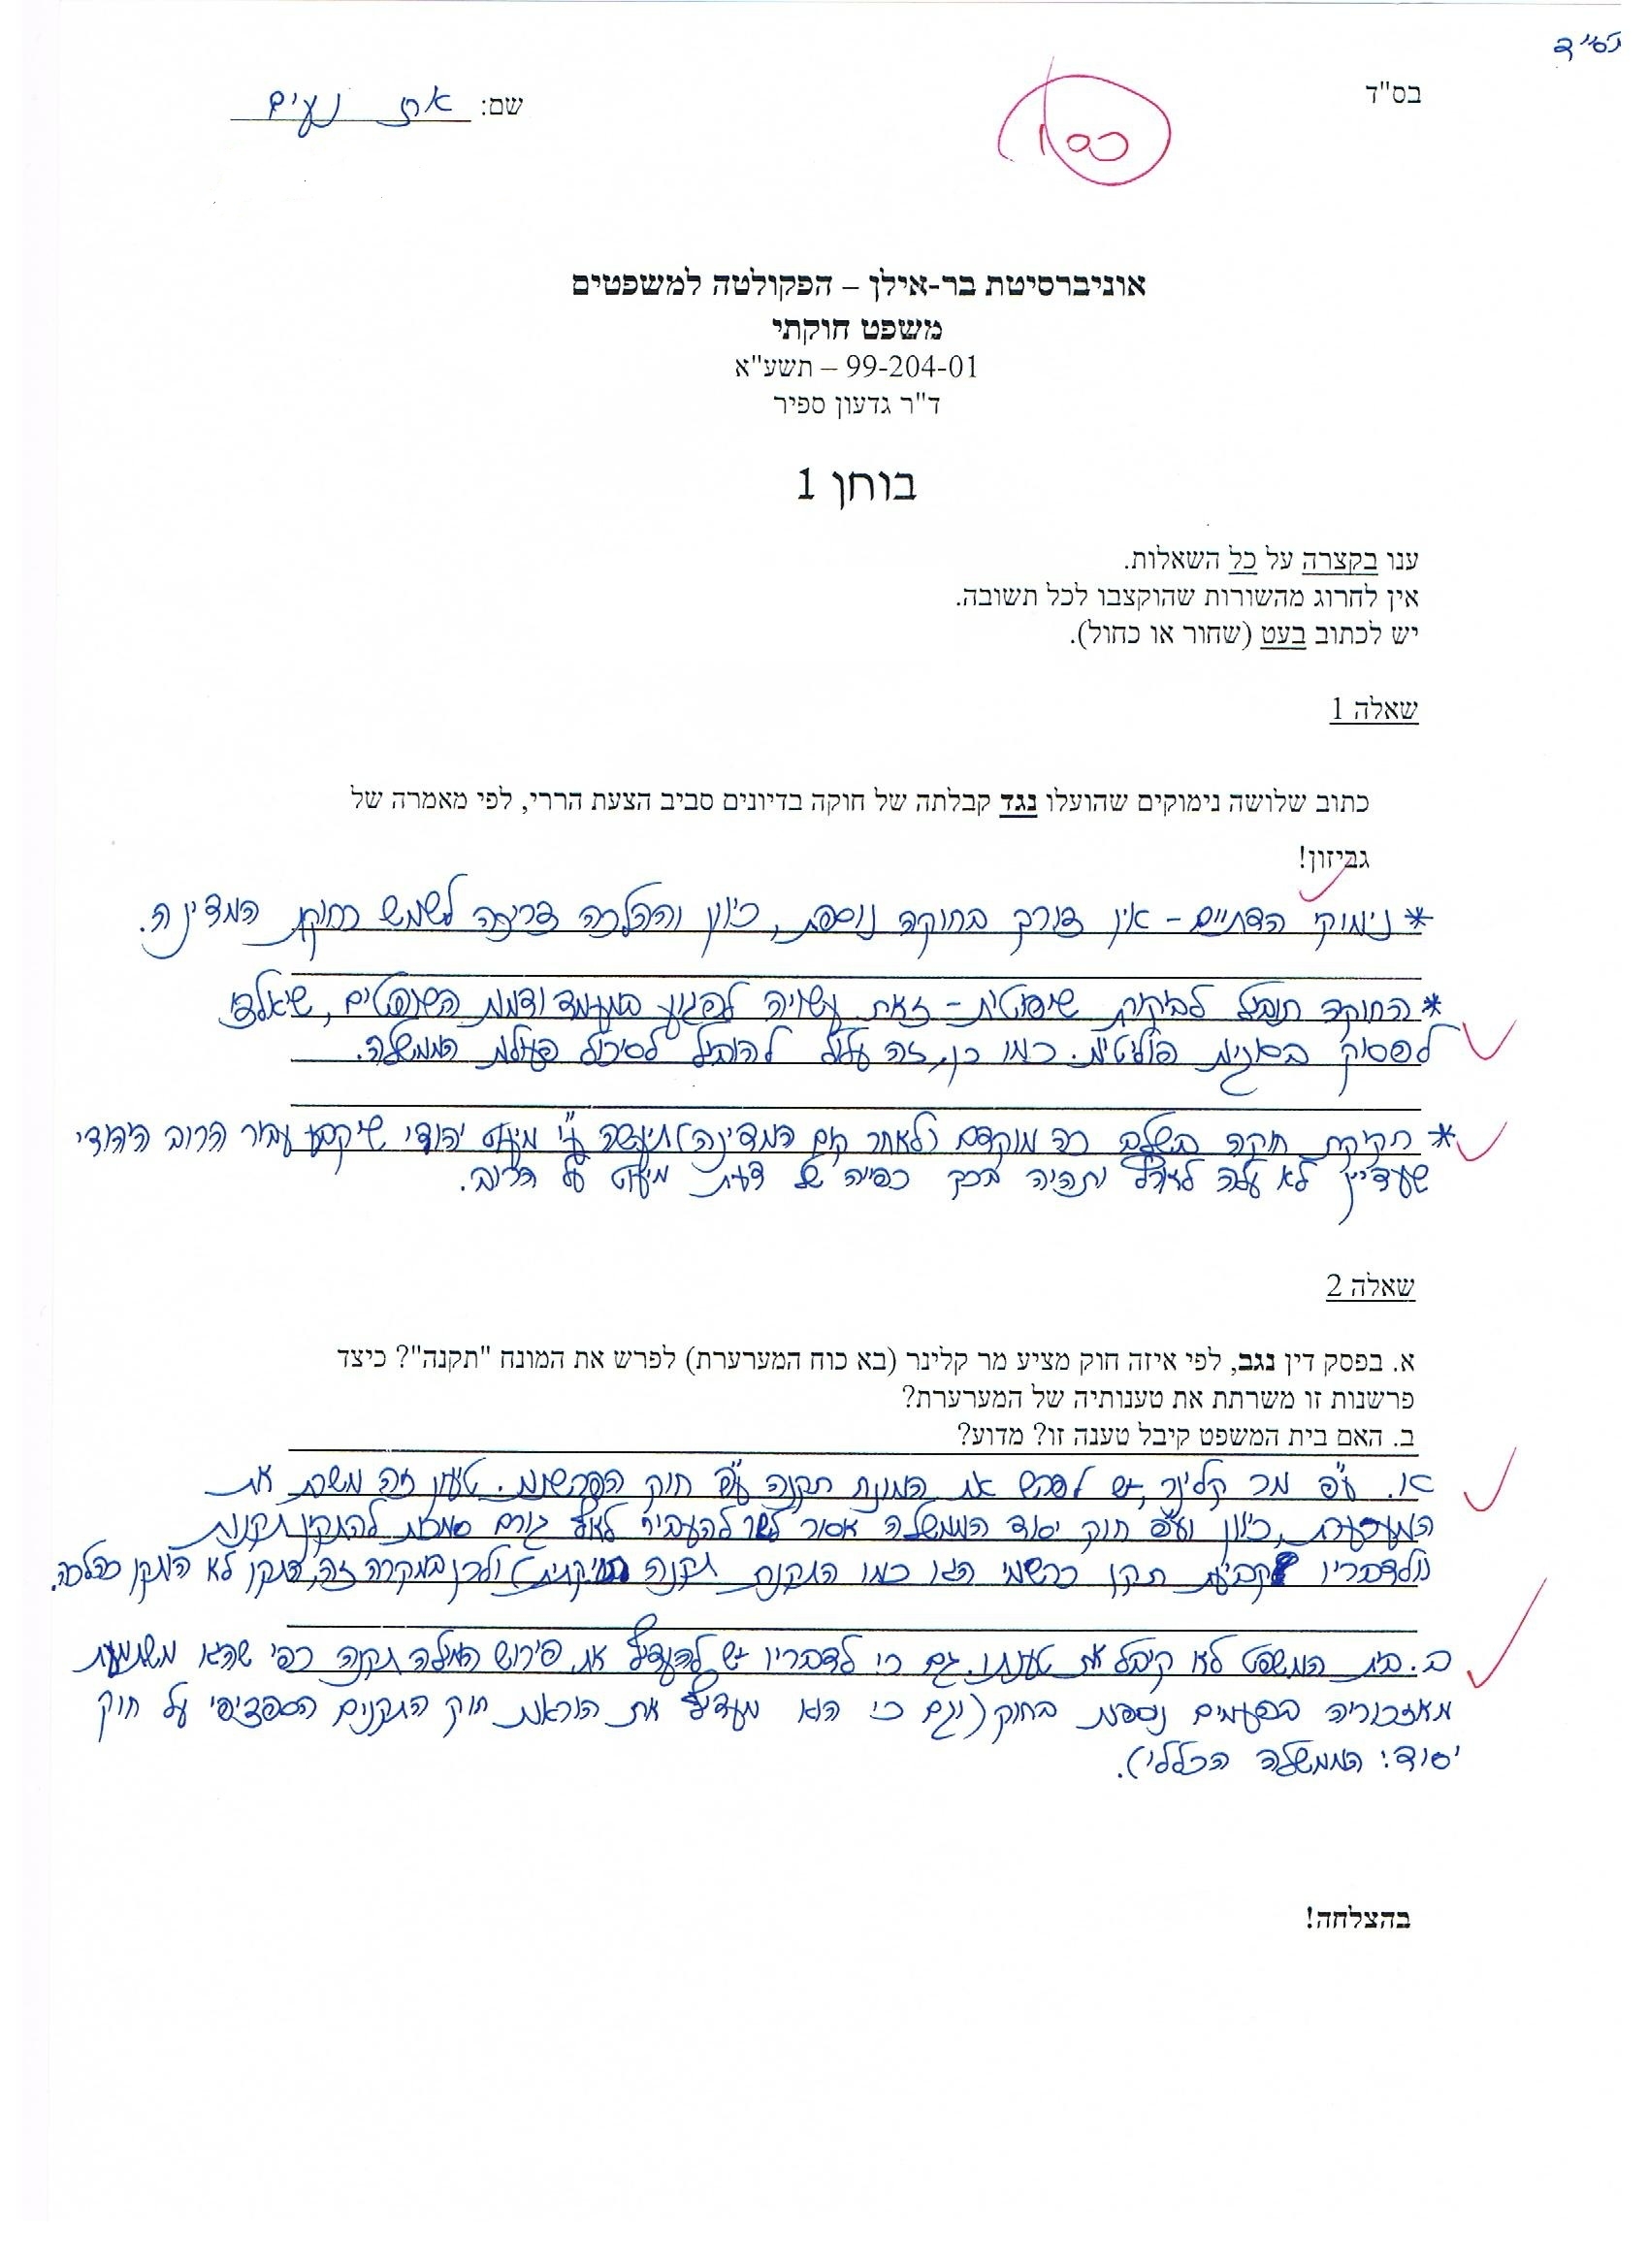 בס"ד
בס"ד
שם: ארז נעים
אוניברסיטת בר-אילן – הפקולטה למשפטים
משפט חוקתי
99-204-01 – תשע"א
ד"ר גדעון ספיר
בוחן 1
ענו בקצרה על כל השאלות.
אין לחרוג מהשורות שהוקצבו לכל תשובה.
יש לכתוב בעט (שחור או כחול).
שאלה 1
כתוב שלושה נימוקים שהועלו נגד קבלתה של חוקה בדיונים סביב הצעת הררי, לפי מאמרה של
גביזון!
* נימוקי הדתיים - אין צורך בחוקה נוספת, כיוון וההלכה צריכה לשמש כחוקת המדינה.
* החוקה תוביל לביקורת שיפוטית - זאת עשויה לפגוע במעמד ודמות השופטים, שיאלצו
לפסוק בסוגיות פוליטיות. כמו כן, זה עלול להוביל לסיכול פעולת הממשלה.
* חקיקת חוקה בשלב כה מוקדם (לאחר קום המדינה) תיעשה ע"י מיעוט יהודי שיקבע עבור הרוב היהודי
שעדיין לא עלה לארץ ותהיה בכך כפייה של דעת מיעוט על הרוב.
שאלה 2
א. בפסק דין נגב, לפי איזה חוק מציע מר קלינר (בא כוח המערערת) לפרש את המונח "תקנה"? כיצד
פרשנות זו משרתת את טענותיה של המערערת?
ב. האם בית המשפט קיבל טענה זו? מדוע?
א. ע"פ מר קלינר, יש לפרש את המונח תקנה ע"פ חוק הפרשנות. טיעון זה משרת את
המערערת, כיוון וע"פ חוק יסוד הממשלה אסור לשר להעביר לאף גורם סמכות להתקין תקנות
(ולדבריו קביעת תקן כרשמי הגו כמו התקנת תקנה) ולכן במקרה זה, התקן לא הותקן כהלכה.
ב. בית המשפט לא קיבל את טענתו. גם כי לדבריו יש להעדיף את פירוש המילה תקנה כפי שהגו משתמעת
מאזכוריה בפעמים נוספות בחוק (וגם כי הוא מעדיף את הוראות חוק התקנים הספציפי על חוק
יסוד: הממשלה הכללי).
בהצלחה!